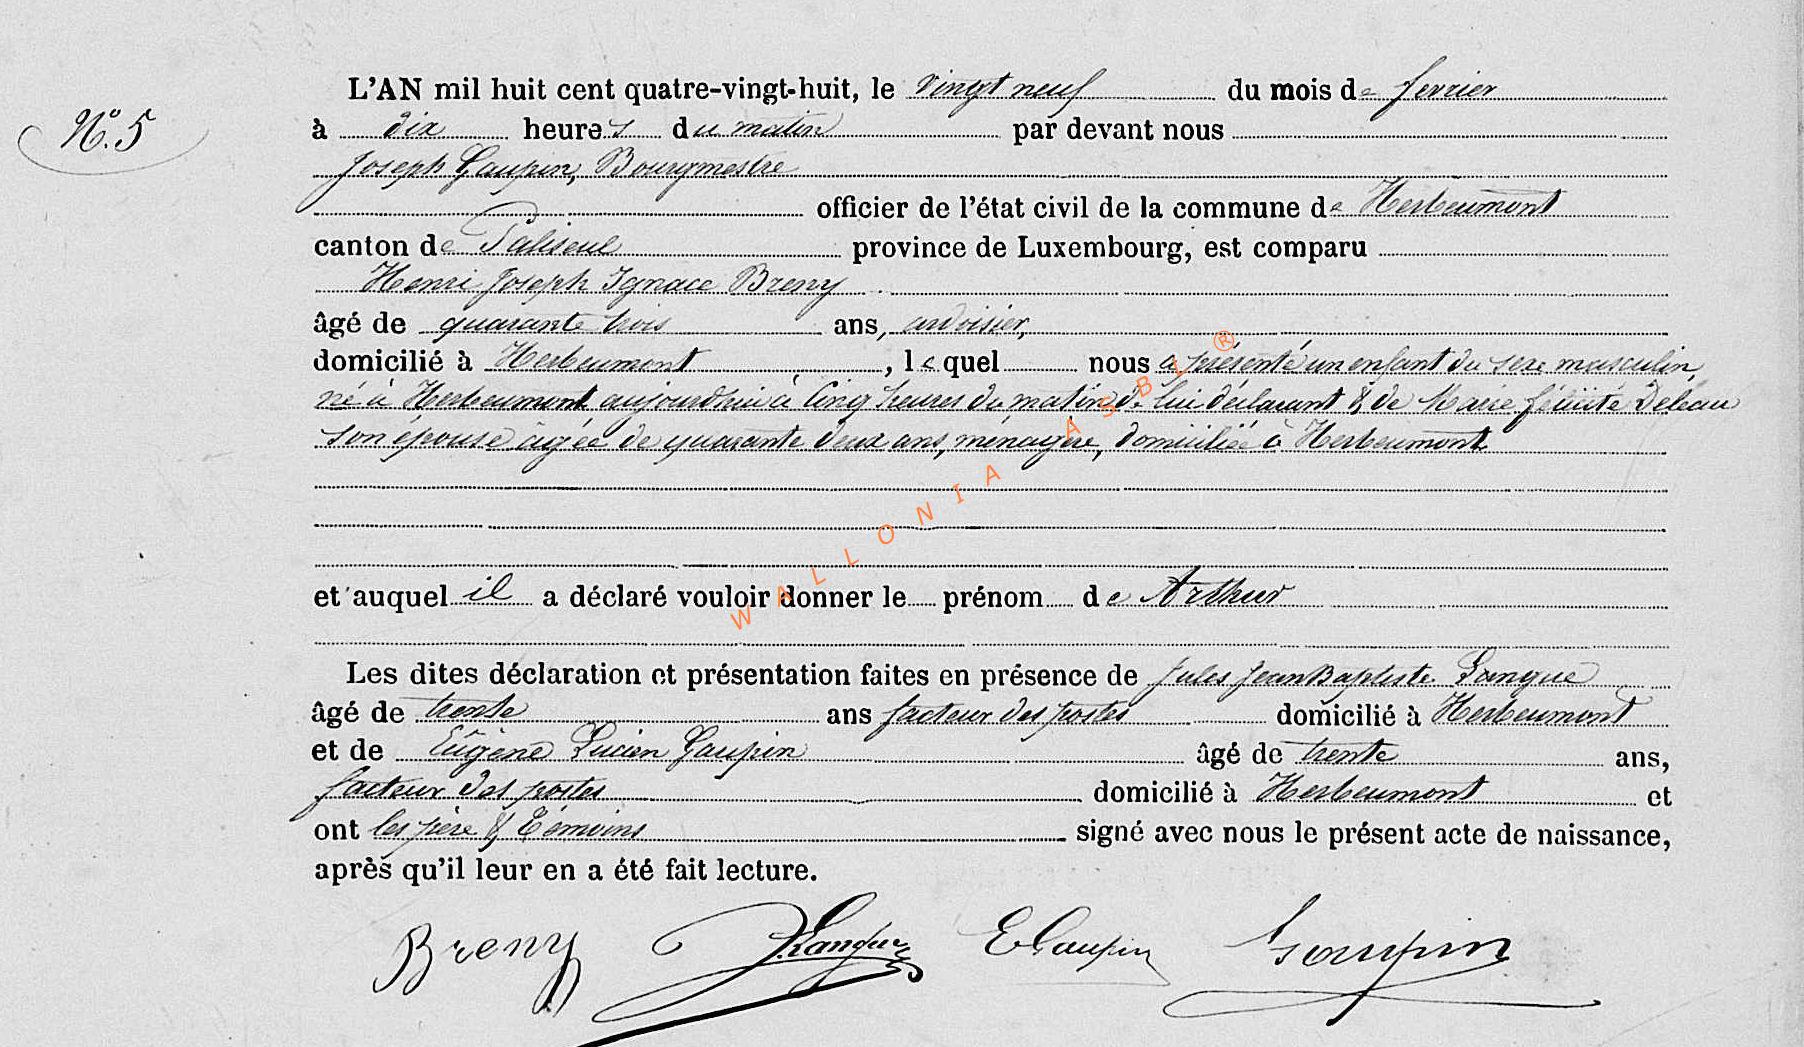 L'AN mil huit cent quatre-vingt-huit, le vingt neuf du mois de fevrier
N° 5
à dix heures du matin par devant nous
Joseph Gaupin, Bourgmestre
officier de l'état civil de la commune de Herbeumont
canton de Paliseul province de Luxembourg, est comparu
Henri Joseph Ignace Breny
âgé de quarante trois ans, ardoisier,
domicilié à Herbeumont, lequel nous a présenté un enfant du sexe masculin,
né à Herbeumont aujourd'hui à cinq heures du matin de lui déclarant & de Marie félicité Deleau
son épouse âgée de quarante deux ans, ménagère, domiciliée à Herbeumont
et auquel il a déclaré vouloir donner le prénom de Arthur
Les dites déclaration et présentation faites en présence de Jules Jean Baptiste Langue
âgé de trente ans facteur des postes domicilié à Herbeumont
et de Eugène Lucien Gaupin âgé de trente ans,
facteur des postes domicilié à Herbeumont et
ont les père & témoins signé avec nous le présent acte de naissance,
après qu'il leur en a été fait lecture.
Breny J.Langue E Gaupin Gaupin
WALLONIA ASBL ®